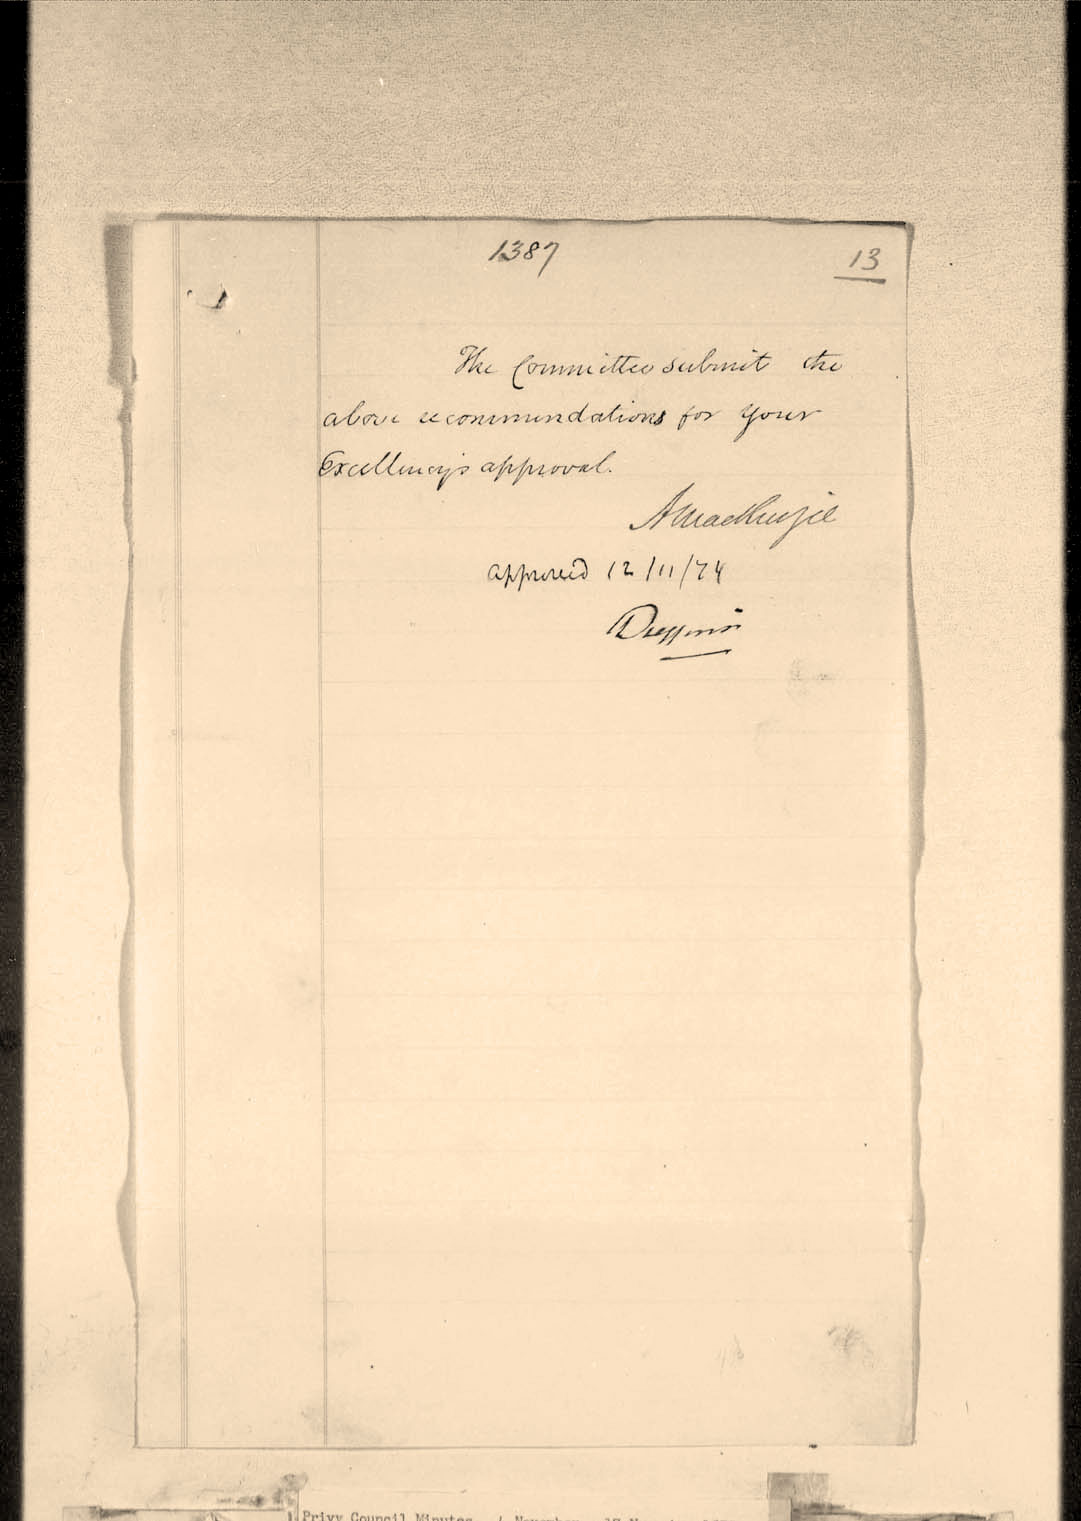 1387
13
The Committee submit the
above recommendations for Your
Excellency's approval.
AMacKenzie
approved 12/11/74
Dufferin
Privy Council Minutes, November